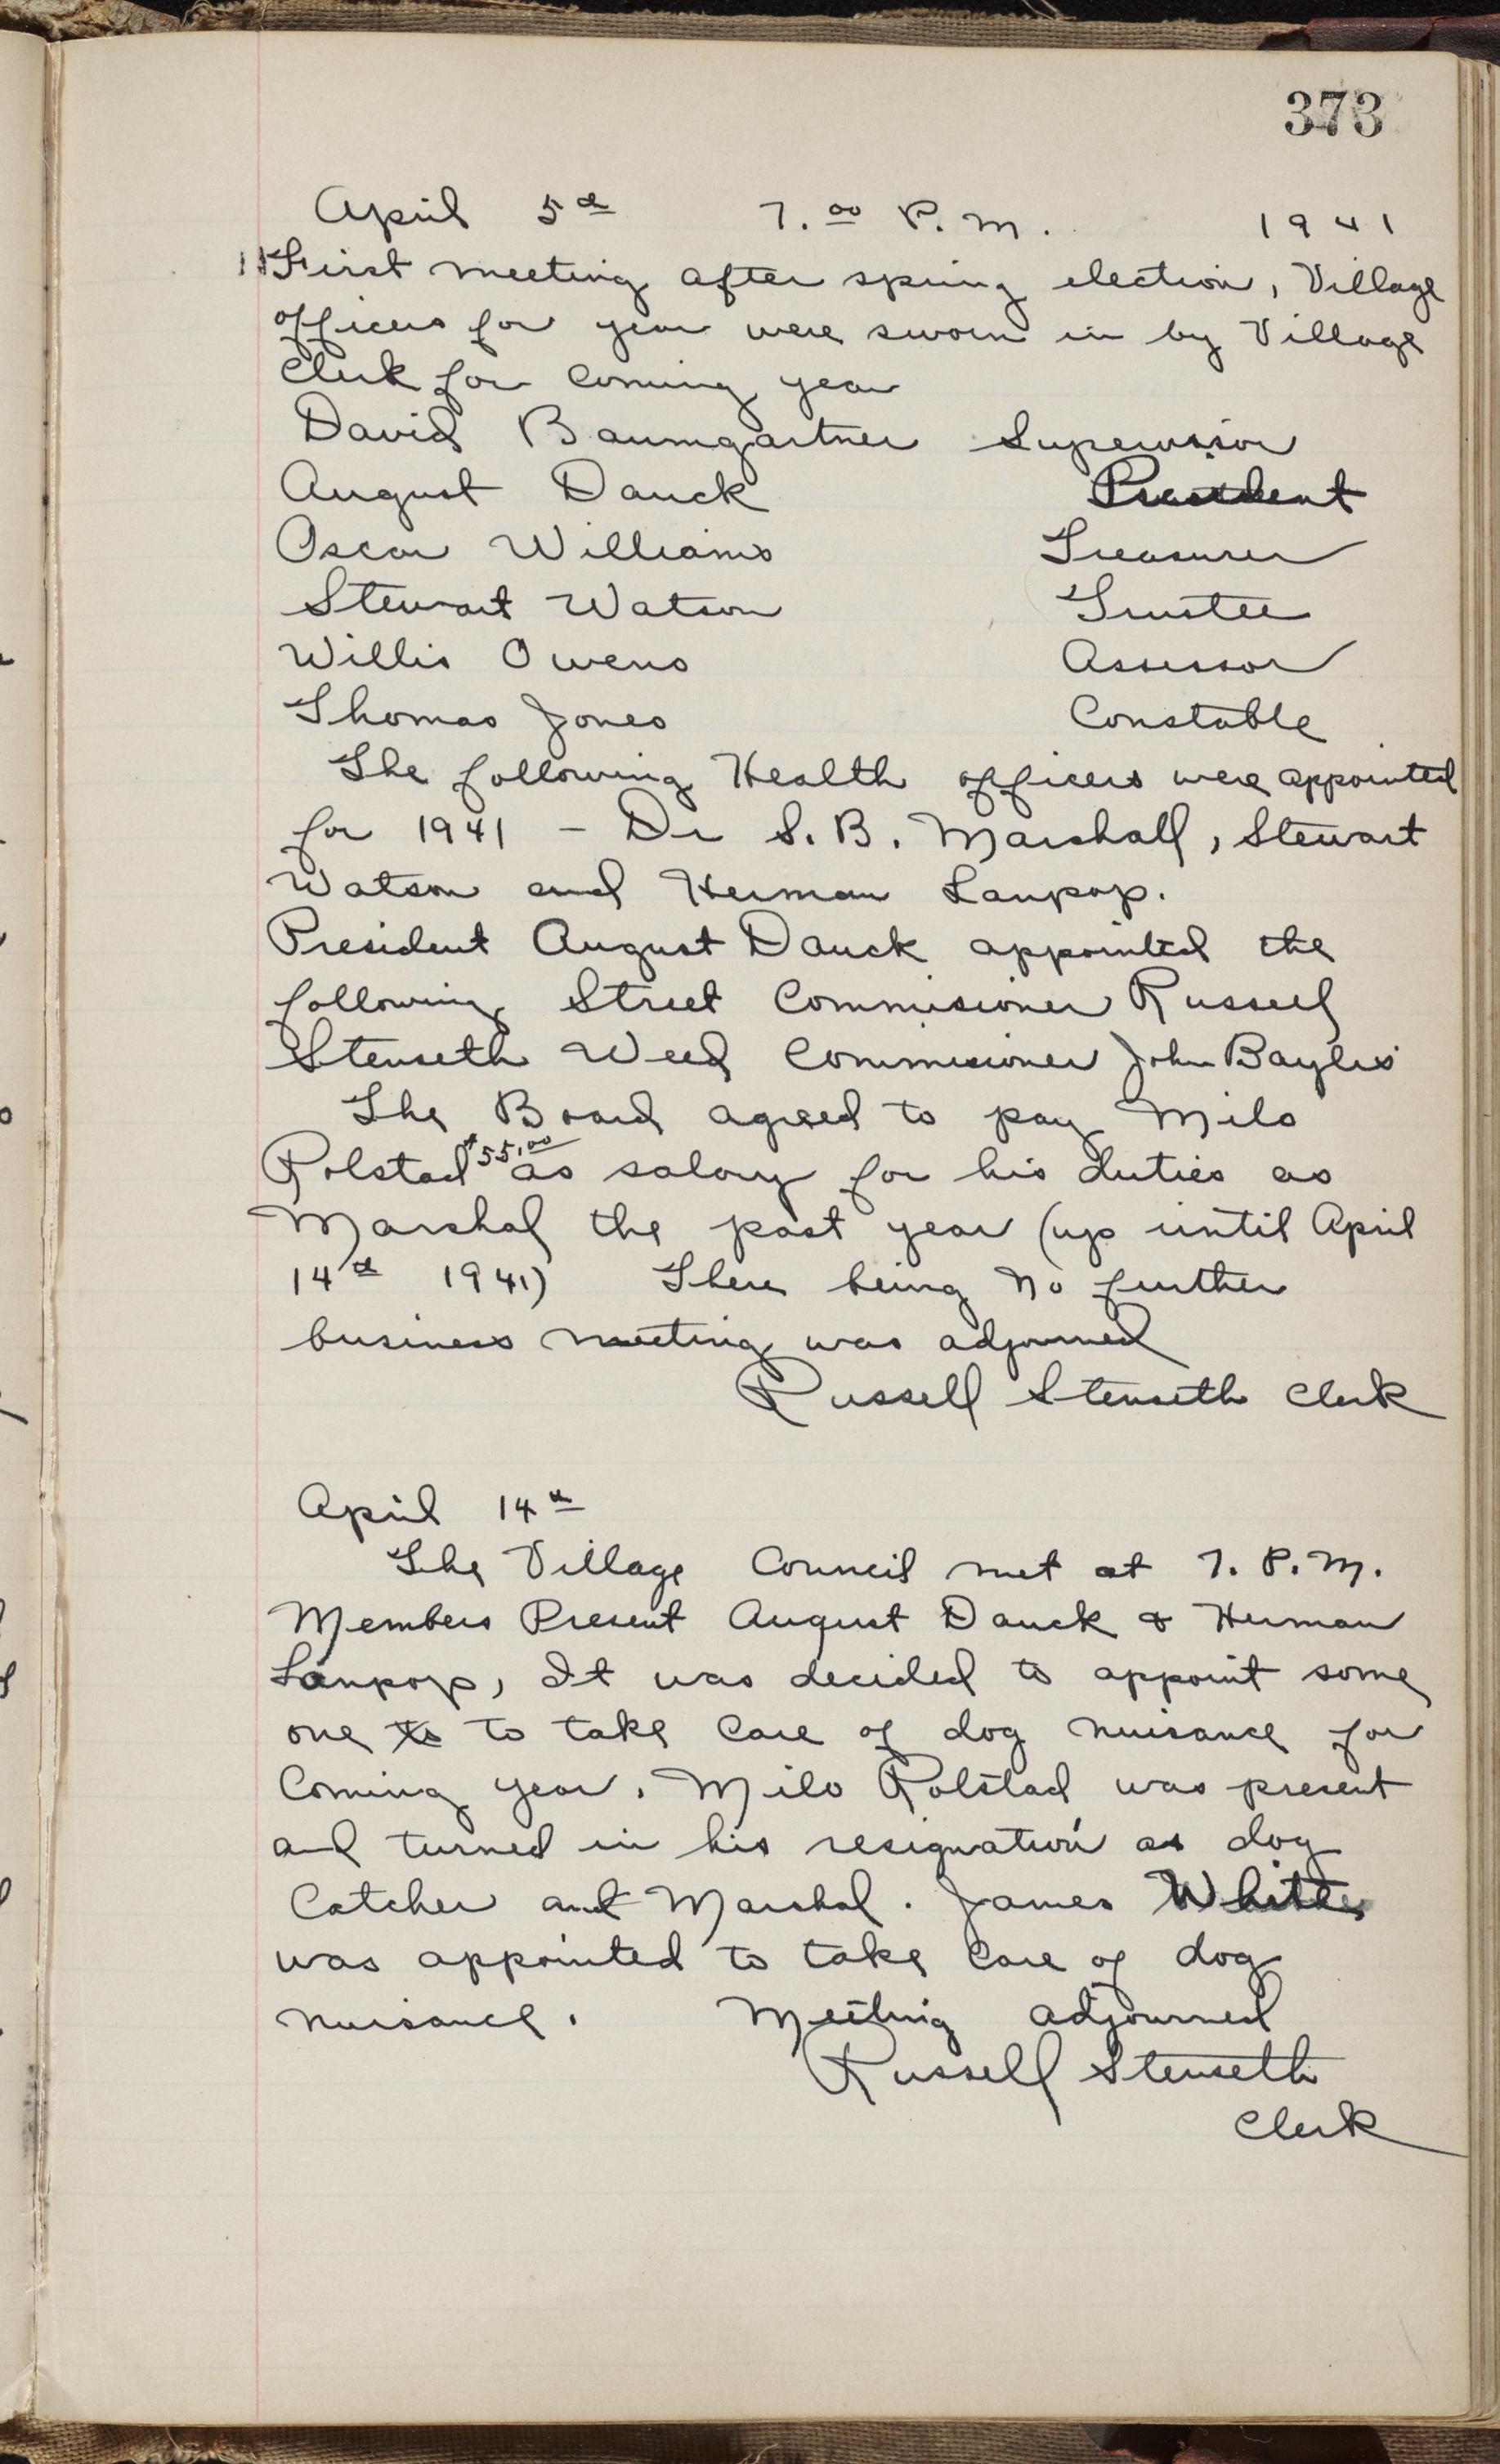 373
April 5th 7.00 P.M. 1941
First meeting after spring election, Village
officers for year were sworn in by Village
Clerk for Coming year
David Baumgartner Supervisor
August Dauck President
Oscar Williams Treasurer
Stewart Watson Trustee
Willis Owens Assessor
Thomas Jones Constable
The following Health officers were appointed
for 1941 - Dr S. B. Marshall, Stewart
Watson and Herman Lanpop.
President August Dauck appointed the
following Street Commisioner Russell
Stenseth Weed Commisioner John Bayles
The Board agreed to pay Milo
Rolstad $55.00 as salary for his duties as
Marshal the past year (up until April
14th 1941) There being no further
business meeting was adjourned
Russell Stenseth Clerk
April 14th
The Village Council met at 7. P.M.
Members Present August Dauck & Herman
Lanpop, It was decided to appoint some
one to to take Care of dog nuisance for
Coming year. Milo Rolstad was present
and turned in his resignation as dog
Catcher and Marshal. James White
was appointed to take Care of dog
nuisance. Meeting adjourned
Russell Stenseth
Clerk